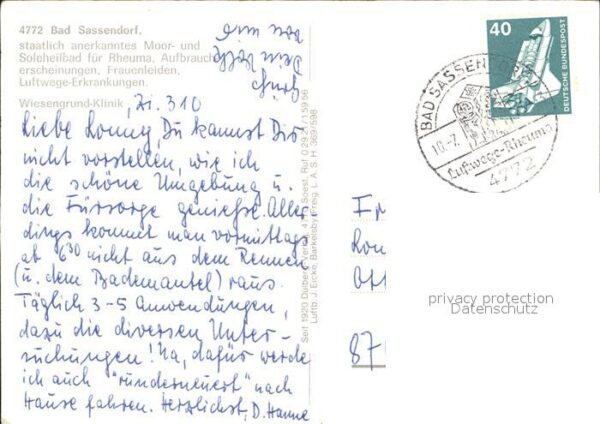 4772 Bad Sassendorf,
staatlich anerkanntes Moor- und
Soleheilbad für Rheuma, Aufbrauch-
erscheinungen, Frauenleiden,
Luftwege-Erkrankungen.
Wiesengrund-Klinik, Zi. 310
Liebe Lonny, Du kannst Dir
nicht vorstellen, wie ich
die schöne Umgebung u.
die Fürsorge genieße. Aller-
dings kommt man vormittags
ab 6³⁰ nicht aus dem Rennen
(u. dem Bademantel) raus.
Täglich 3-5 Anwendungen,
dazu die diversen Unter-
suchungen! Na, dafür werde
ich auch "runderneuert" nach
Hause fahren. Herzlichst, D. Hanne
Seit 1920 Dülberg-Verlag 477 Soest, Ruf 0 29 21 / 1 59 56
Luftb. J. Eicke, Barkelsby Freig. L A S H 369/598
40
DEUTSCHE BUNDESPOST
BAD SASSENDORF
10.-7.
Luftwege-Rheuma
4772
87
privacy protection
Datenschutz